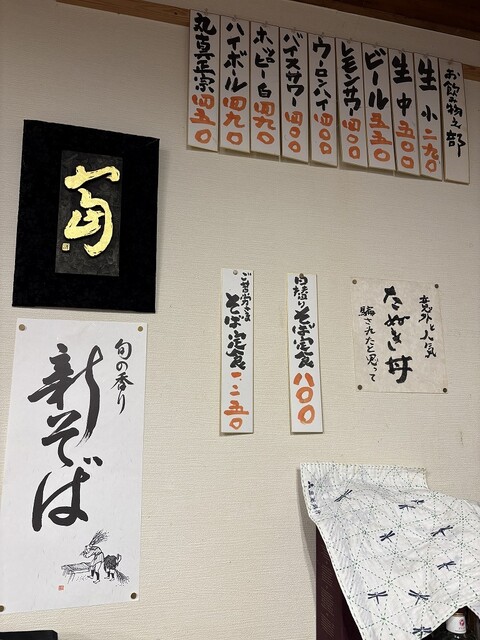 お飲み物之部
生 小 二九〇
生 中 五〇〇
ビール 五五〇
レモンサワー 四〇〇
ウーロンハイ 四〇〇
バイスサワー 四〇〇
ホッピー白 四九〇
ハイボール 四九〇
丸真正宗 四五〇
意外と人気
たぬき丼
騙されたと思って
そば定食 八〇〇
ご苦労さま
そば定食 一、二五〇
旬の香り
新そば